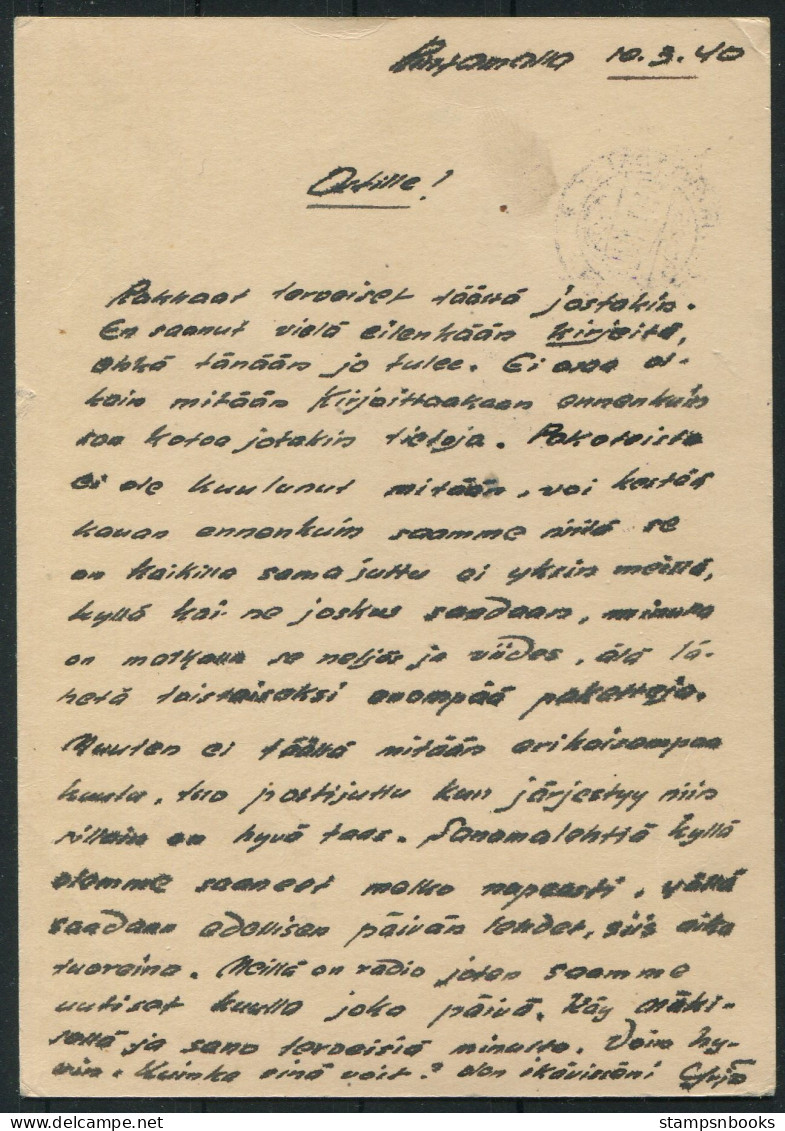 10.3.40
Ortille!
Rakkaat terveiset täältä jostakin.
En saanut vielä eilenkään kirjettä,
ehkä tänään jo tulee. Ei osaa oi-
kein mitään kirjoittaakaan ennenkuin
saa kotoa jotakin tietoja. Paketeista
ei ole kuulunut mitään, voi kestää
kauan ennenkuin saamme niitä se
on kaikilla sama juttu ei yksin meillä,
kyllä kai ne joskus saadaan, minulla
on matkalla se neljäs ja viides, älä lä-
hetä toistaiseksi enempää paketteja.
Muuten ei täällä mitään erikoisempaa
kuulu, tuo postijuttu kun järjestyy niin
silloin on hyvä taas. Sanomalehtiä kyllä
olemme saaneet melko nopeasti,
saadaan edellisen päivän lehdet, siis aika
tuoreina. Meillä on radio joten saamme
uutiset kuulla joka päivä. Käy Mäki-
sellä ja sano terveisiä minulta. Voin hy-
vin. Kuinka sinä voit? on ikävissäni
stampsnbooks